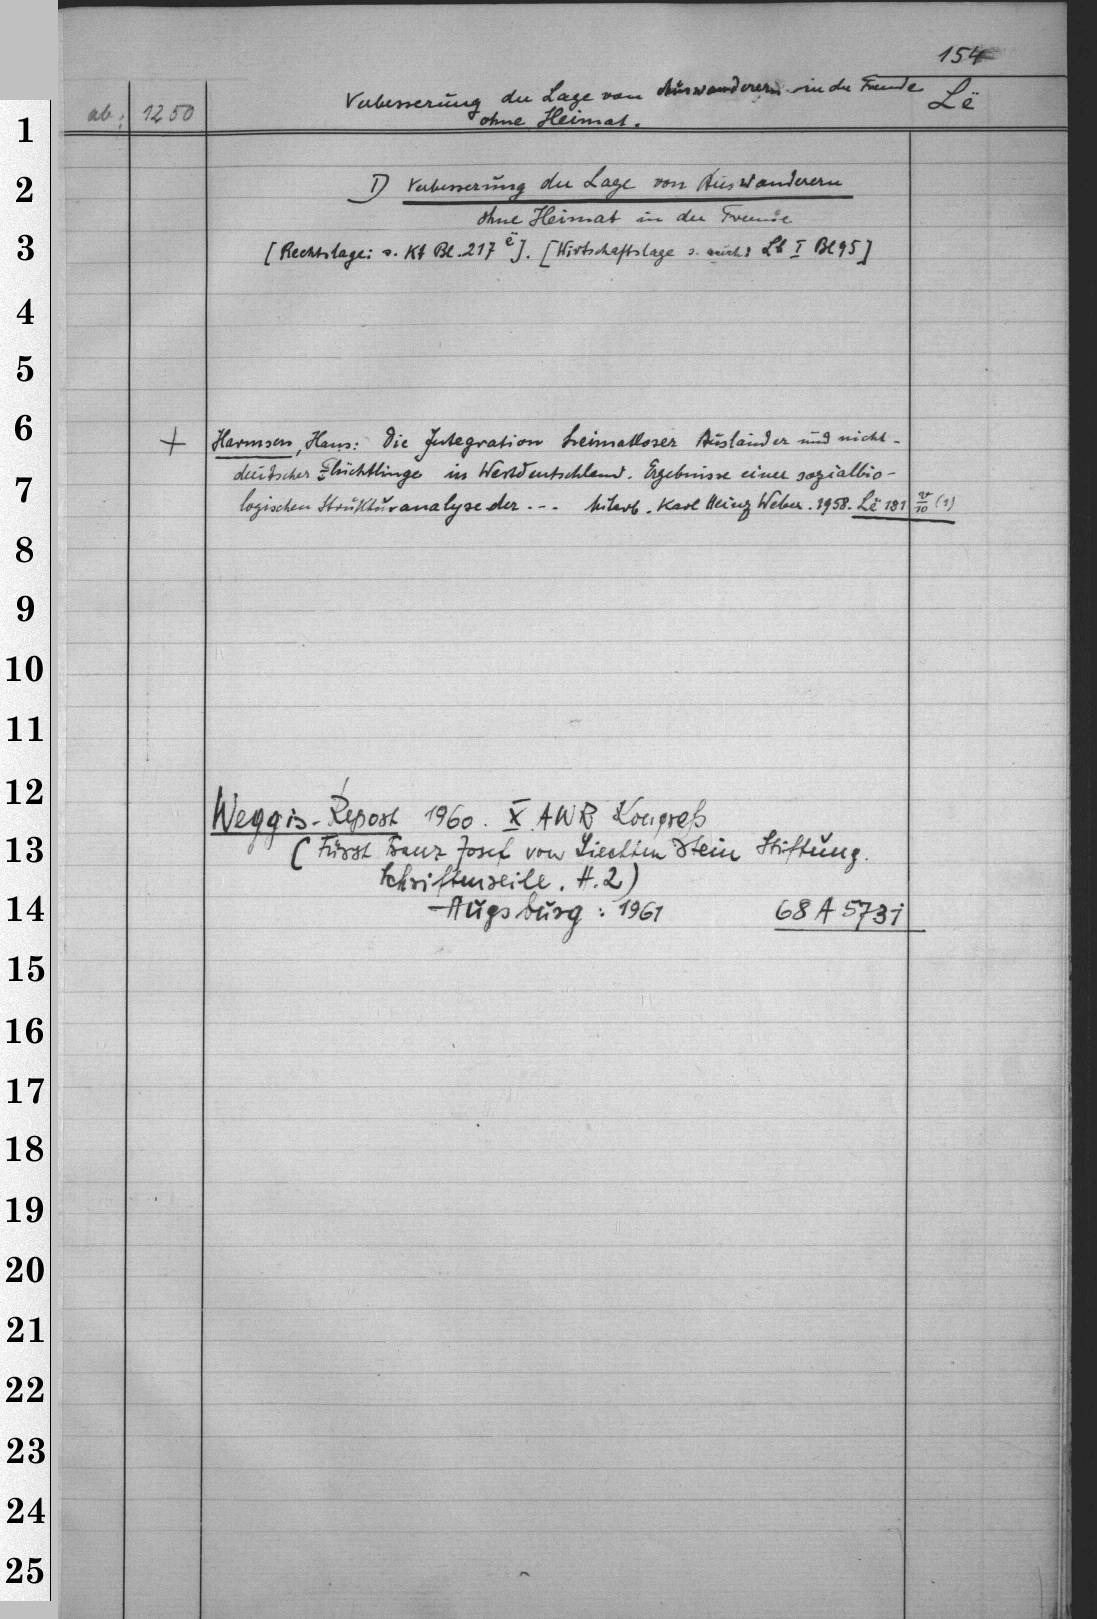 154
Verbesserung der Lage von Auswanderern in der Fremde
Lë
ab: 1250
ohne Heimat.
1
I) Verbesserung der Lage von Auswanderern
2
ohne Heimat in der Fremde
[Rechtslage: s. Kf Bl. 217 ë]. [Wirtschaftslage s. auch: Lb I Bl 95]
3
4
5
6
+ Harmsen, Hans: Die Integration heimatloser Ausländer und nicht-
deutscher Flüchtlinge in Westdeutschland. Ergebnisse einer sozialbio-
7
logischen Strukturanalyse der --- Mitarb. Karl Heinz Weber. 1958. Lë 181
8
9
10
11
12
Weggis-Report 1960. X. AWR Kongreß
13
(Fürst Franz Josef von Liechtenstein Stiftung.
Schriftenreihe. H. 2)
14
- Augsburg: 1961 68 A 573i
15
16
17
18
19
20
21
22
23
24
25